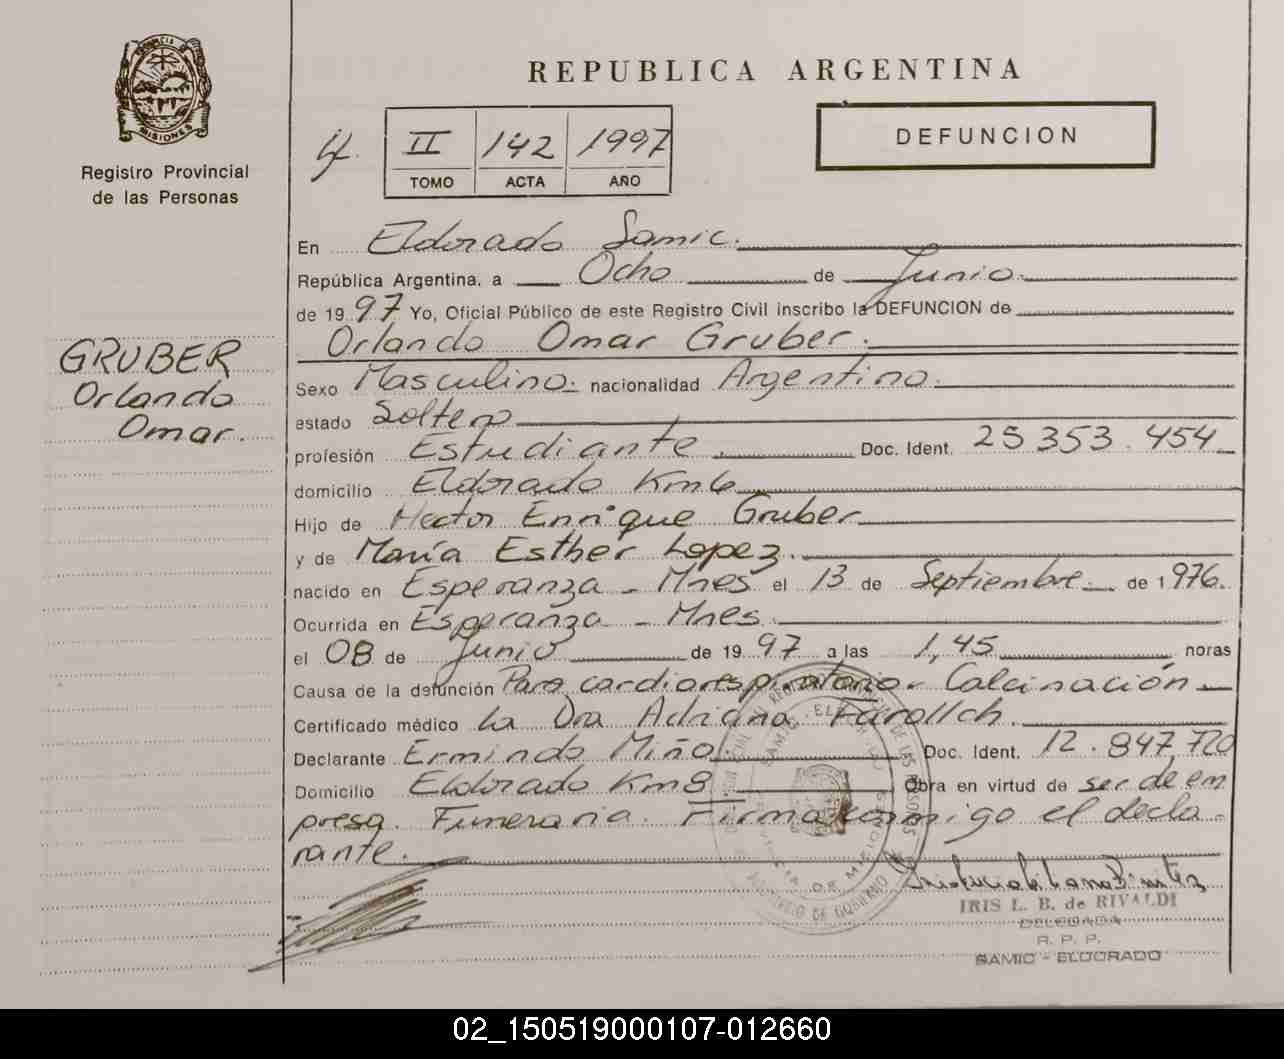 PROVINCIA DE
MISIONES
Registro Provincial
de las Personas
REPUBLICA ARGENTINA
II 142 1997
TOMO ACTA AÑO
DEFUNCION
GRUBER
Orlando
Omar.
En Eldorado Samic.
República Argentina, a Ocho de Junio.
de 1997 Yo, Oficial Público de este Registro Civil inscribo la DEFUNCION de
Orlando Omar Gruber.
Sexo Masculino. nacionalidad Argentino.
estado Soltero
profesión Estudiante. Doc. Ident. 25 353.454
domicilio Eldorado Km6
Hijo de Hector Enrique Gruber
y de María Esther Lopez.
nacido en Esperanza - Mnes el 13 de Septiembre. de 1976.
Ocurrida en Esperanza - Mnes.
el 08 de Junio de 1997 a las 1,45 horas
Causa de la defunción Paro cardiorespiratorio - Calcinación
Certificado médico la Dra Adriana
Declarante Ermindo Miño. Doc. Ident. 12.847.720
Domicilio Eldorado Km8. Obra en virtud de ser de em
presa. Funeraria. Firma conmigo el decla-
rante.
IRIS L. B. de RIVALDI
DELEGADA
R. P. P.
SAMIC - ELDORADO
02_150519000107-012660